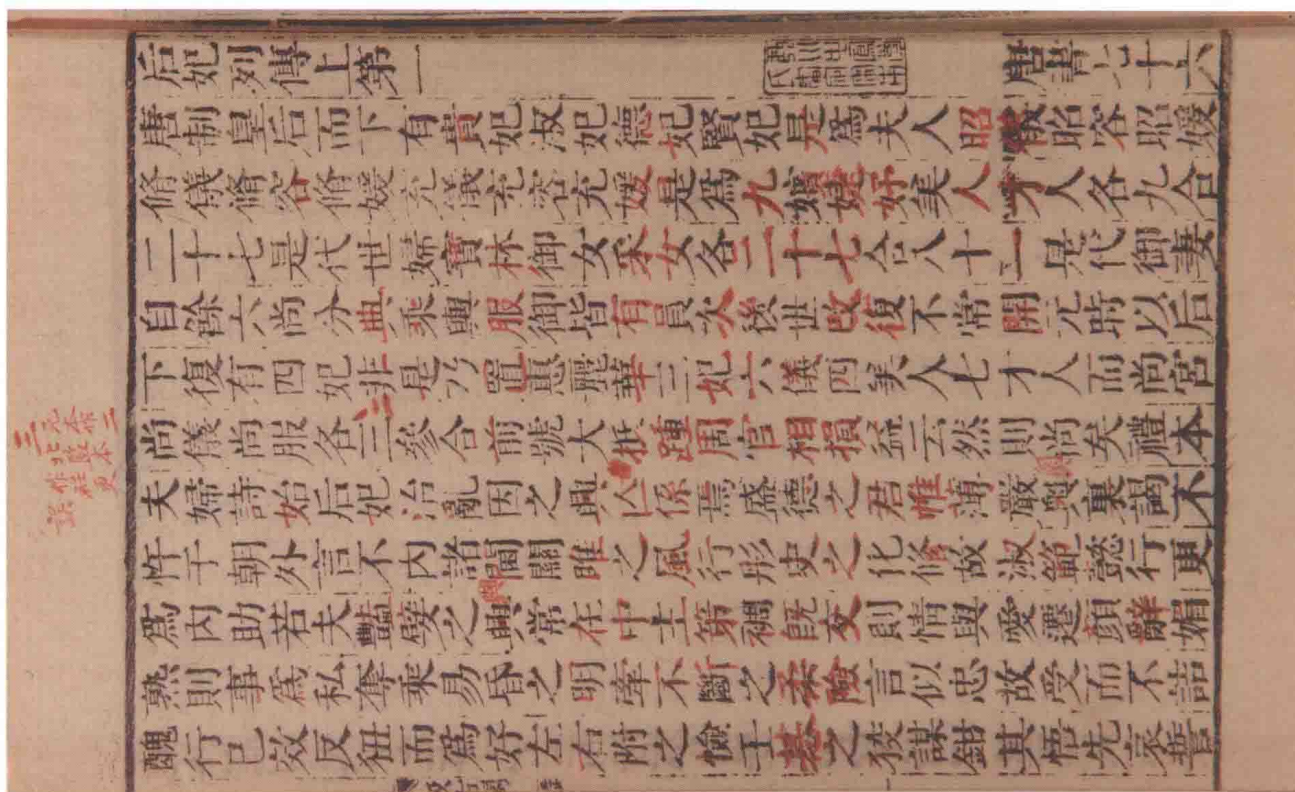 后妃列傳上第一 唐書七十六
唐制皇后而下有貴妃淑妃德妃賢妃是爲夫人昭儀昭容昭媛
脩儀脩容脩媛充儀充容充媛是爲九嬪婕妤美人才人各九合
二十七是代世婦寶林御女采女各二十七合八十一是代御妻
自餘六尚分典乘輿服御皆有員次後世改復不常開元時以后
下復有四妃非是乃置惠麗華三妃六儀四美人七才人而尚宮
尚儀尚服各三參合前號大抵踵周官相損益云然則尚矣禮本
夫婦詩始后妃治亂因之興亾係焉盛德之君帷薄嚴奧裏謁不
忤于朝外言不內諸閫關雎之風行彤史之化修故淑範懿行更
爲內助若夫豔嬖之興常在中主第裯旣交則情與愛遷顏辭媚
熟則事爲私奪乘易昏之明牽不斷之柔險言似忠故受而不詰
醜行已效反狃而爲好左右附之憸壬基之狡謀鉗其悟先哀誓